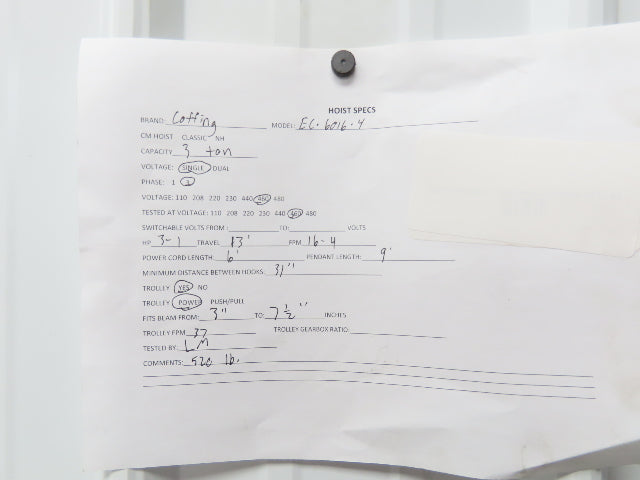 HOIST SPECS
BRAND: Coffing MODEL: EC-6016-4
CM HOIST CLASSIC NH
CAPACITY 3 ton
VOLTAGE: SINGLE DUAL
PHASE: 1 3
VOLTAGE: 110 208 220 230 440 460 480
TESTED AT VOLTAGE: 110 208 220 230 440 460 480
SWITCHABLE VOLTS FROM: TO: VOLTS
HP 3-1 TRAVEL 13' FPM 16-4
POWER CORD LENGTH: 6' PENDANT LENGTH: 9'
MINIMUM DISTANCE BETWEEN HOOKS: 31"
TROLLEY YES NO
TROLLEY POWER PUSH/PULL
FITS BEAM FROM: 3" TO: 7 1/2" INCHES
TROLLEY FPM 37 TROLLEY GEARBOX RATIO:
TESTED BY: LM
COMMENTS: 520 lb.